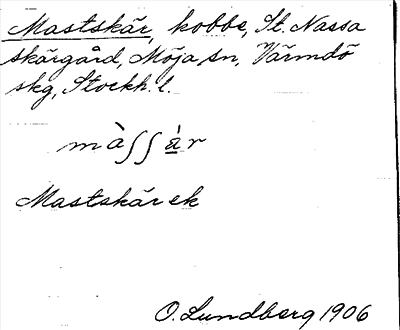 Mastskär, kobbe, St. Nassa
skärgård, Möja sn, Värmdö
skg, Stockh. l.
màʃʃä̀r
Mastskär ek
O. Lundberg 1906